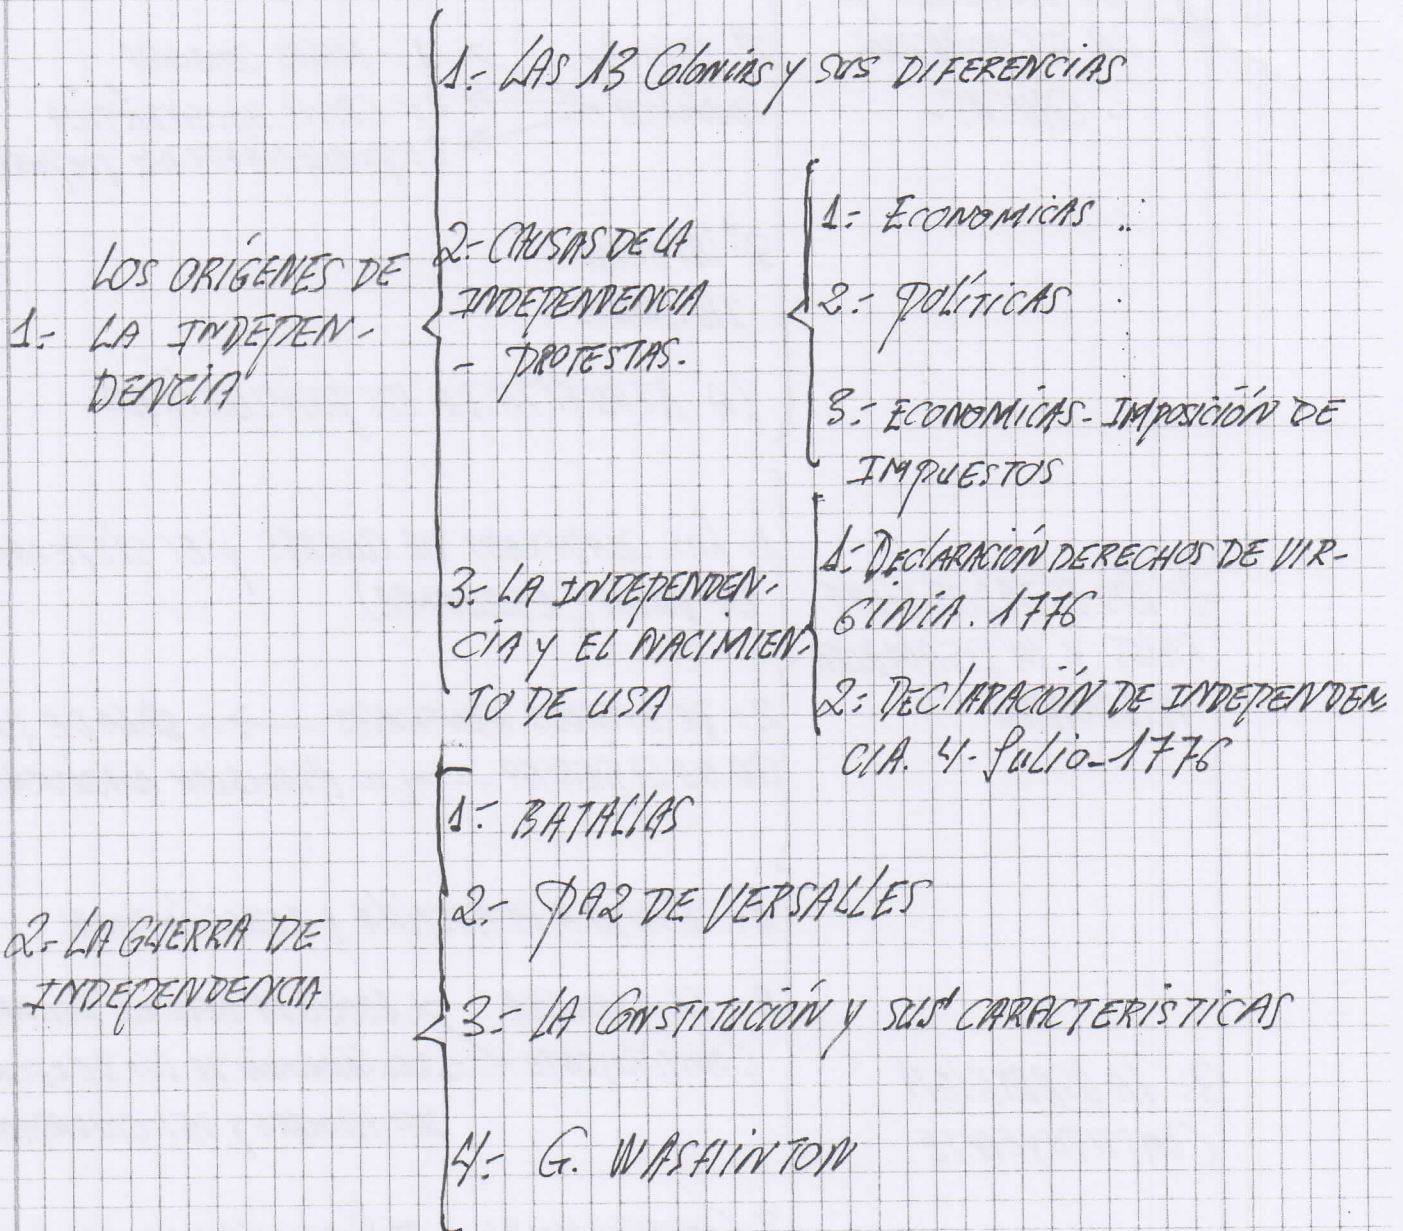 1.- LOS ORÍGENES DE
LA INDEPEN-
DENCIA
1.- LAS 13 Colonias y SUS DIFERENCIAS
2.- CAUSAS DE LA
INDEPENDENCIA
- PROTESTAS.
1.- ECONOMICAS
2.- POLÍTICAS
3.- ECONOMICAS - IMPOSICIÓN DE
IMPUESTOS
3.- LA INDEPENDEN-
CIA Y EL NACIMIEN-
TO DE USA
1.- DEClARACIÓN DERECHOS DE VIR-
GINIA. 1776
2.- DEClARACIÓN DE INDEPENDEN-
CIA. 4- Julio-1776
2.- LA GUERRA DE
INDEPENDENCIA
1.- BATALLAS
2.- PAZ DE VERSALLES
3.- LA CONSTITUCIÓN Y SUS CARACTERISTICAS
4.- G. WASHINTON